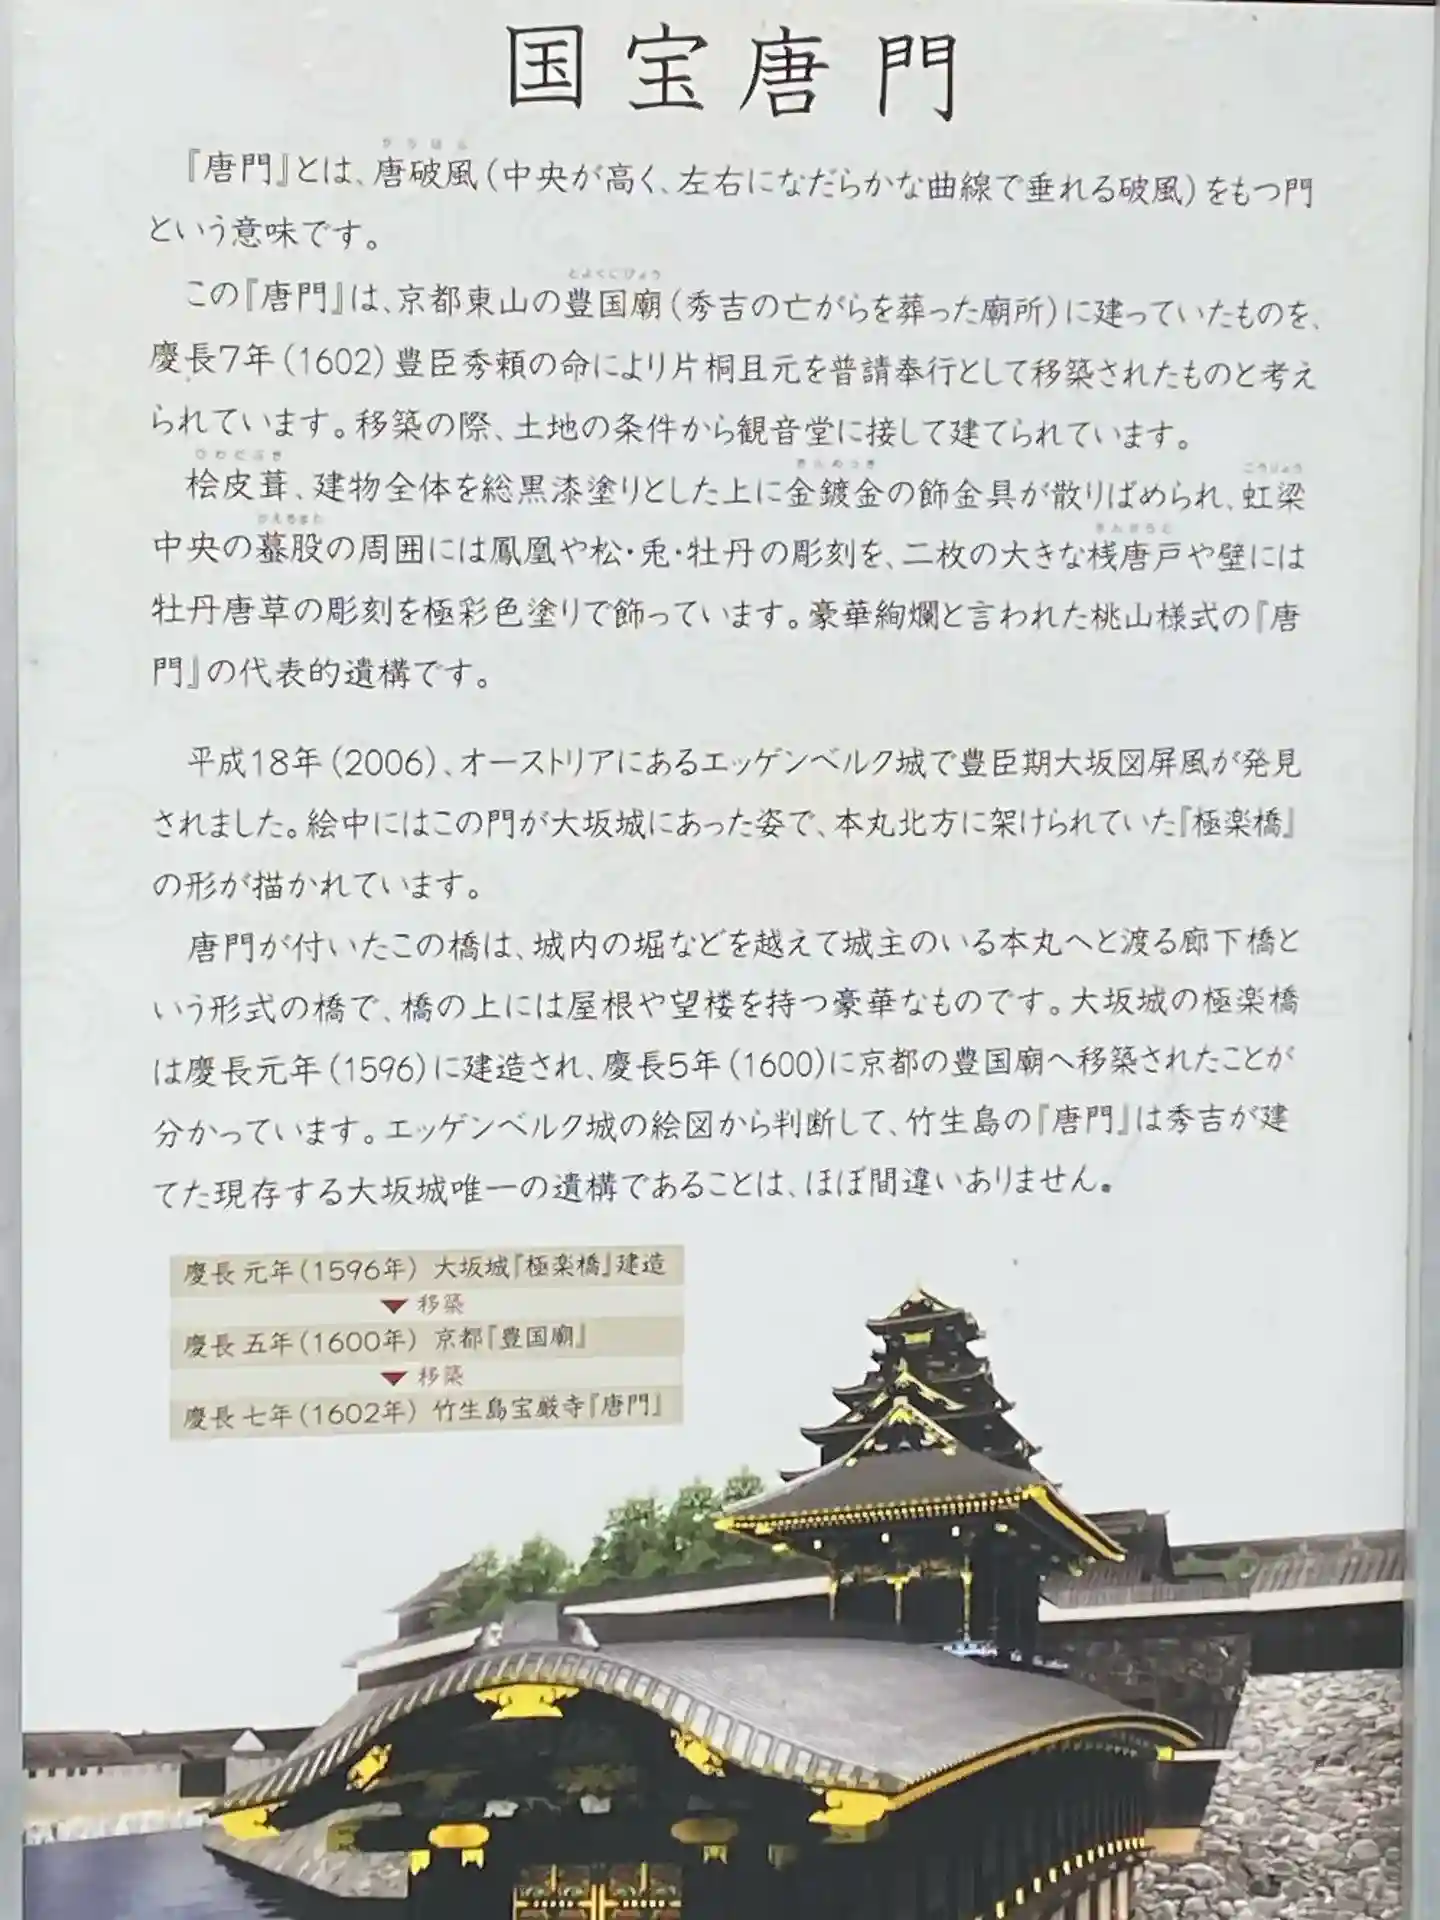 国宝唐門
『唐門』とは、唐破風(中央が高く、左右になだらかな曲線で垂れる破風)をもつ門
という意味です。
この『唐門』は、京都東山の豊国廟(秀吉の亡がらを葬った廟所)に建っていたものを、
慶長7年(1602)豊臣秀頼の命により片桐且元を普請奉行として移築されたものと考え
られています。移築の際、土地の条件から観音堂に接して建てられています。
桧皮葺、建物全体を総黒漆塗りとした上に金鍍金の飾金具が散りばめられ、虹梁
中央の蟇股の周囲には鳳凰や松・兎・牡丹の彫刻を、二枚の大きな桟唐戸や壁には
牡丹唐草の彫刻を極彩色塗りで飾っています。豪華絢爛と言われた桃山様式の『唐
門』の代表的遺構です。
平成18年(2006)、オーストリアにあるエッゲンベルク城で豊臣期大坂図屏風が発見
されました。絵中にはこの門が大坂城にあった姿で、本丸北方に架けられていた『極楽橋』
の形が描かれています。
唐門が付いたこの橋は、城内の堀などを越えて城主のいる本丸へと渡る廊下橋と
いう形式の橋で、橋の上には屋根や望楼を持つ豪華なものです。大坂城の極楽橋
は慶長元年(1596)に建造され、慶長5年(1600)に京都の豊国廟へ移築されたことが
分かっています。エッゲンベルク城の絵図から判断して、竹生島の『唐門』は秀吉が建
てた現存する大坂城唯一の遺構であることは、ほぼ間違いありません。
慶長元年(1596年) 大坂城『極楽橋』建造
▼移築
慶長五年(1600年) 京都『豊国廟』
▼移築
慶長七年(1602年) 竹生島宝厳寺『唐門』